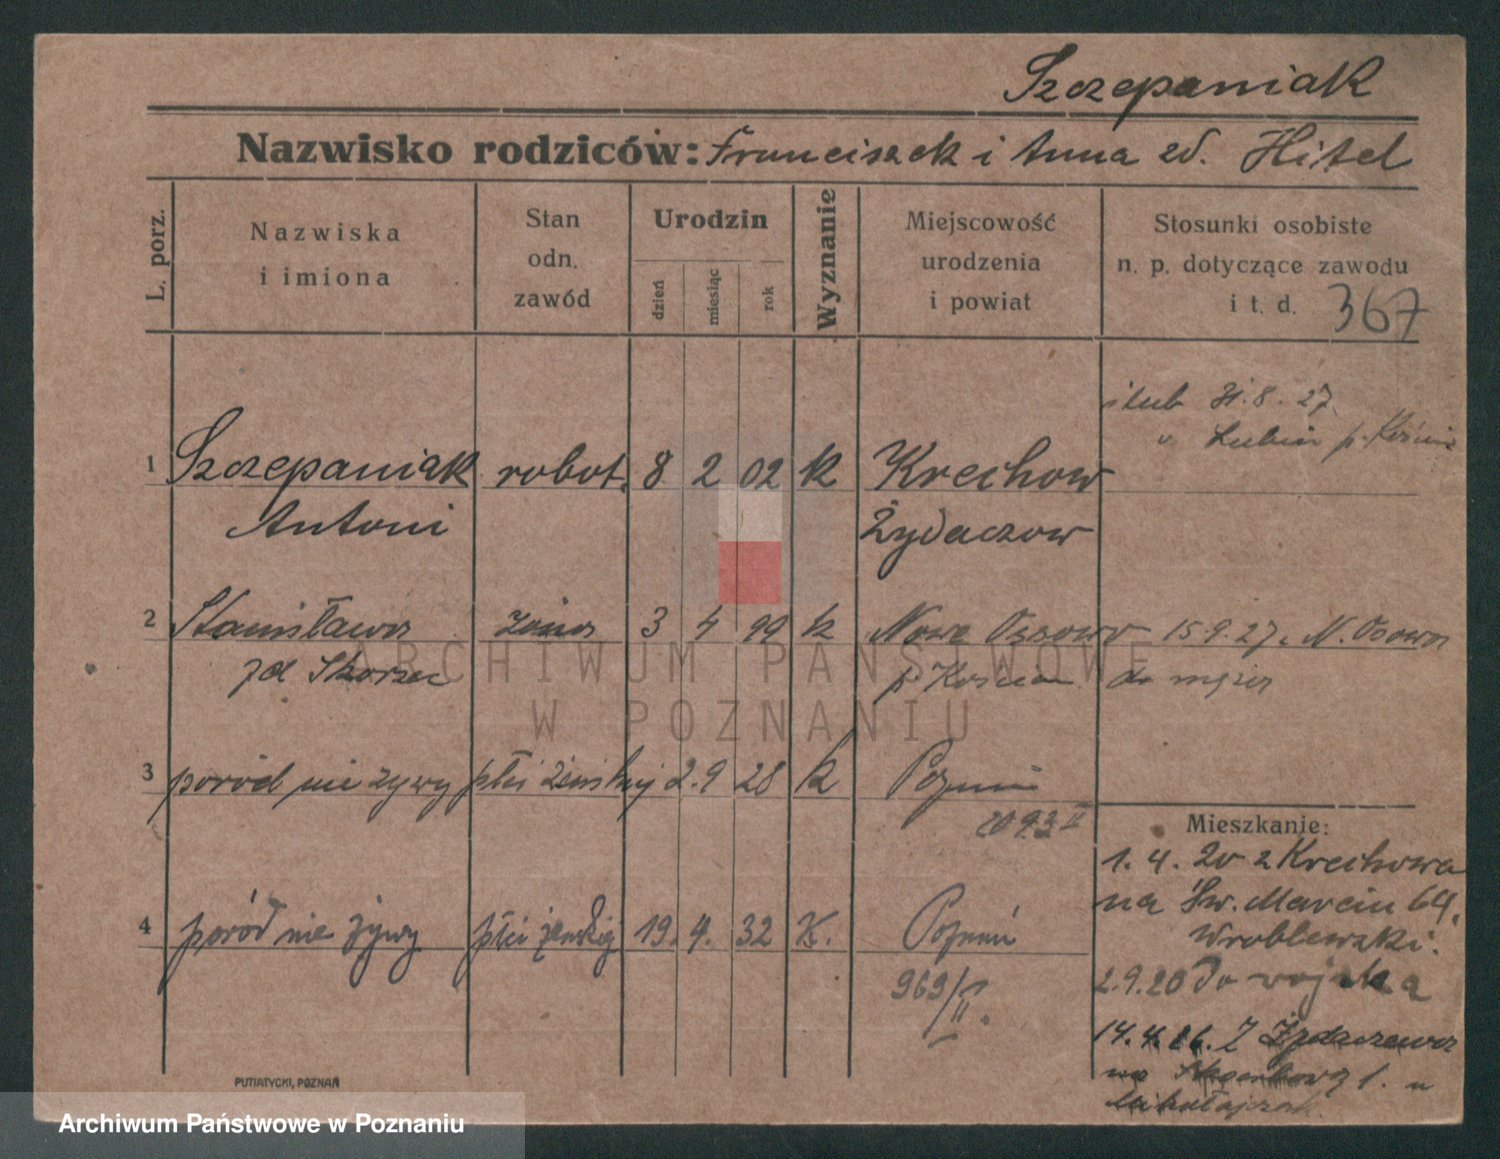 Szczepaniak
Nazwisko rodziców: Franciszek i Anna zd. Hitel
L. porz.
Nazwiska
i imiona
Stan
odn.
zawód
Urodzin
dzień
miesiąc
rok
Wyznanie
Miejscowość
urodzenia
i powiat
Stosunki osobiste
n. p. dotyczące zawodu
i t. d.
367
ślub 31.8.27
w Lubin p.
1 Szczepaniak robot. 8 2 02 k Krechow
Antoni Żydaczow
2 Stanisława żona 3 4 99 k Nowe Ossowo 15.9.27. N. Osowo
zd Skorzec p. Koscian do męża
3 poród nie żywy płci żeńskiej 2.9 28 k Poznań
2093 II
4 poród nie żywy płci żeńskiej 19. 4. 32 K. Poznań
969/II.
Mieszkanie:
1. 4. 20 z Krechowa
na Św. Marcin 64.
Wroblewski.
2.9.20 do wojska
14.4.26. Z Żydaczowa
na 1. u
PUTIATYCKI, POZNAŃ
ARCHIWUM PAŃSTWOWE
W POZNANIU
Archiwum Państwowe w Poznaniu